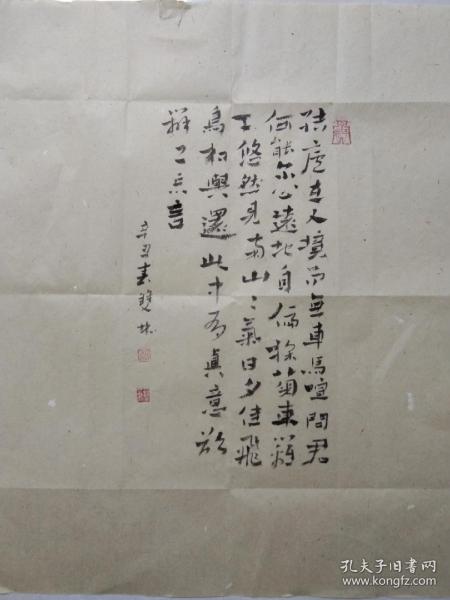 結廬在人境而無車馬喧問君
何能尔心遠地自偏採菊東籬
下悠然見南山〻氣日夕佳飛
鳥相與還此中有眞意欲
辯已忘言
辛丑春雙林
孔夫子旧书网
www.kongfz.com